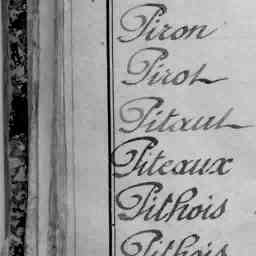 Piron
Pirot
Pitaut
Piteaux
Pithois
Pithois